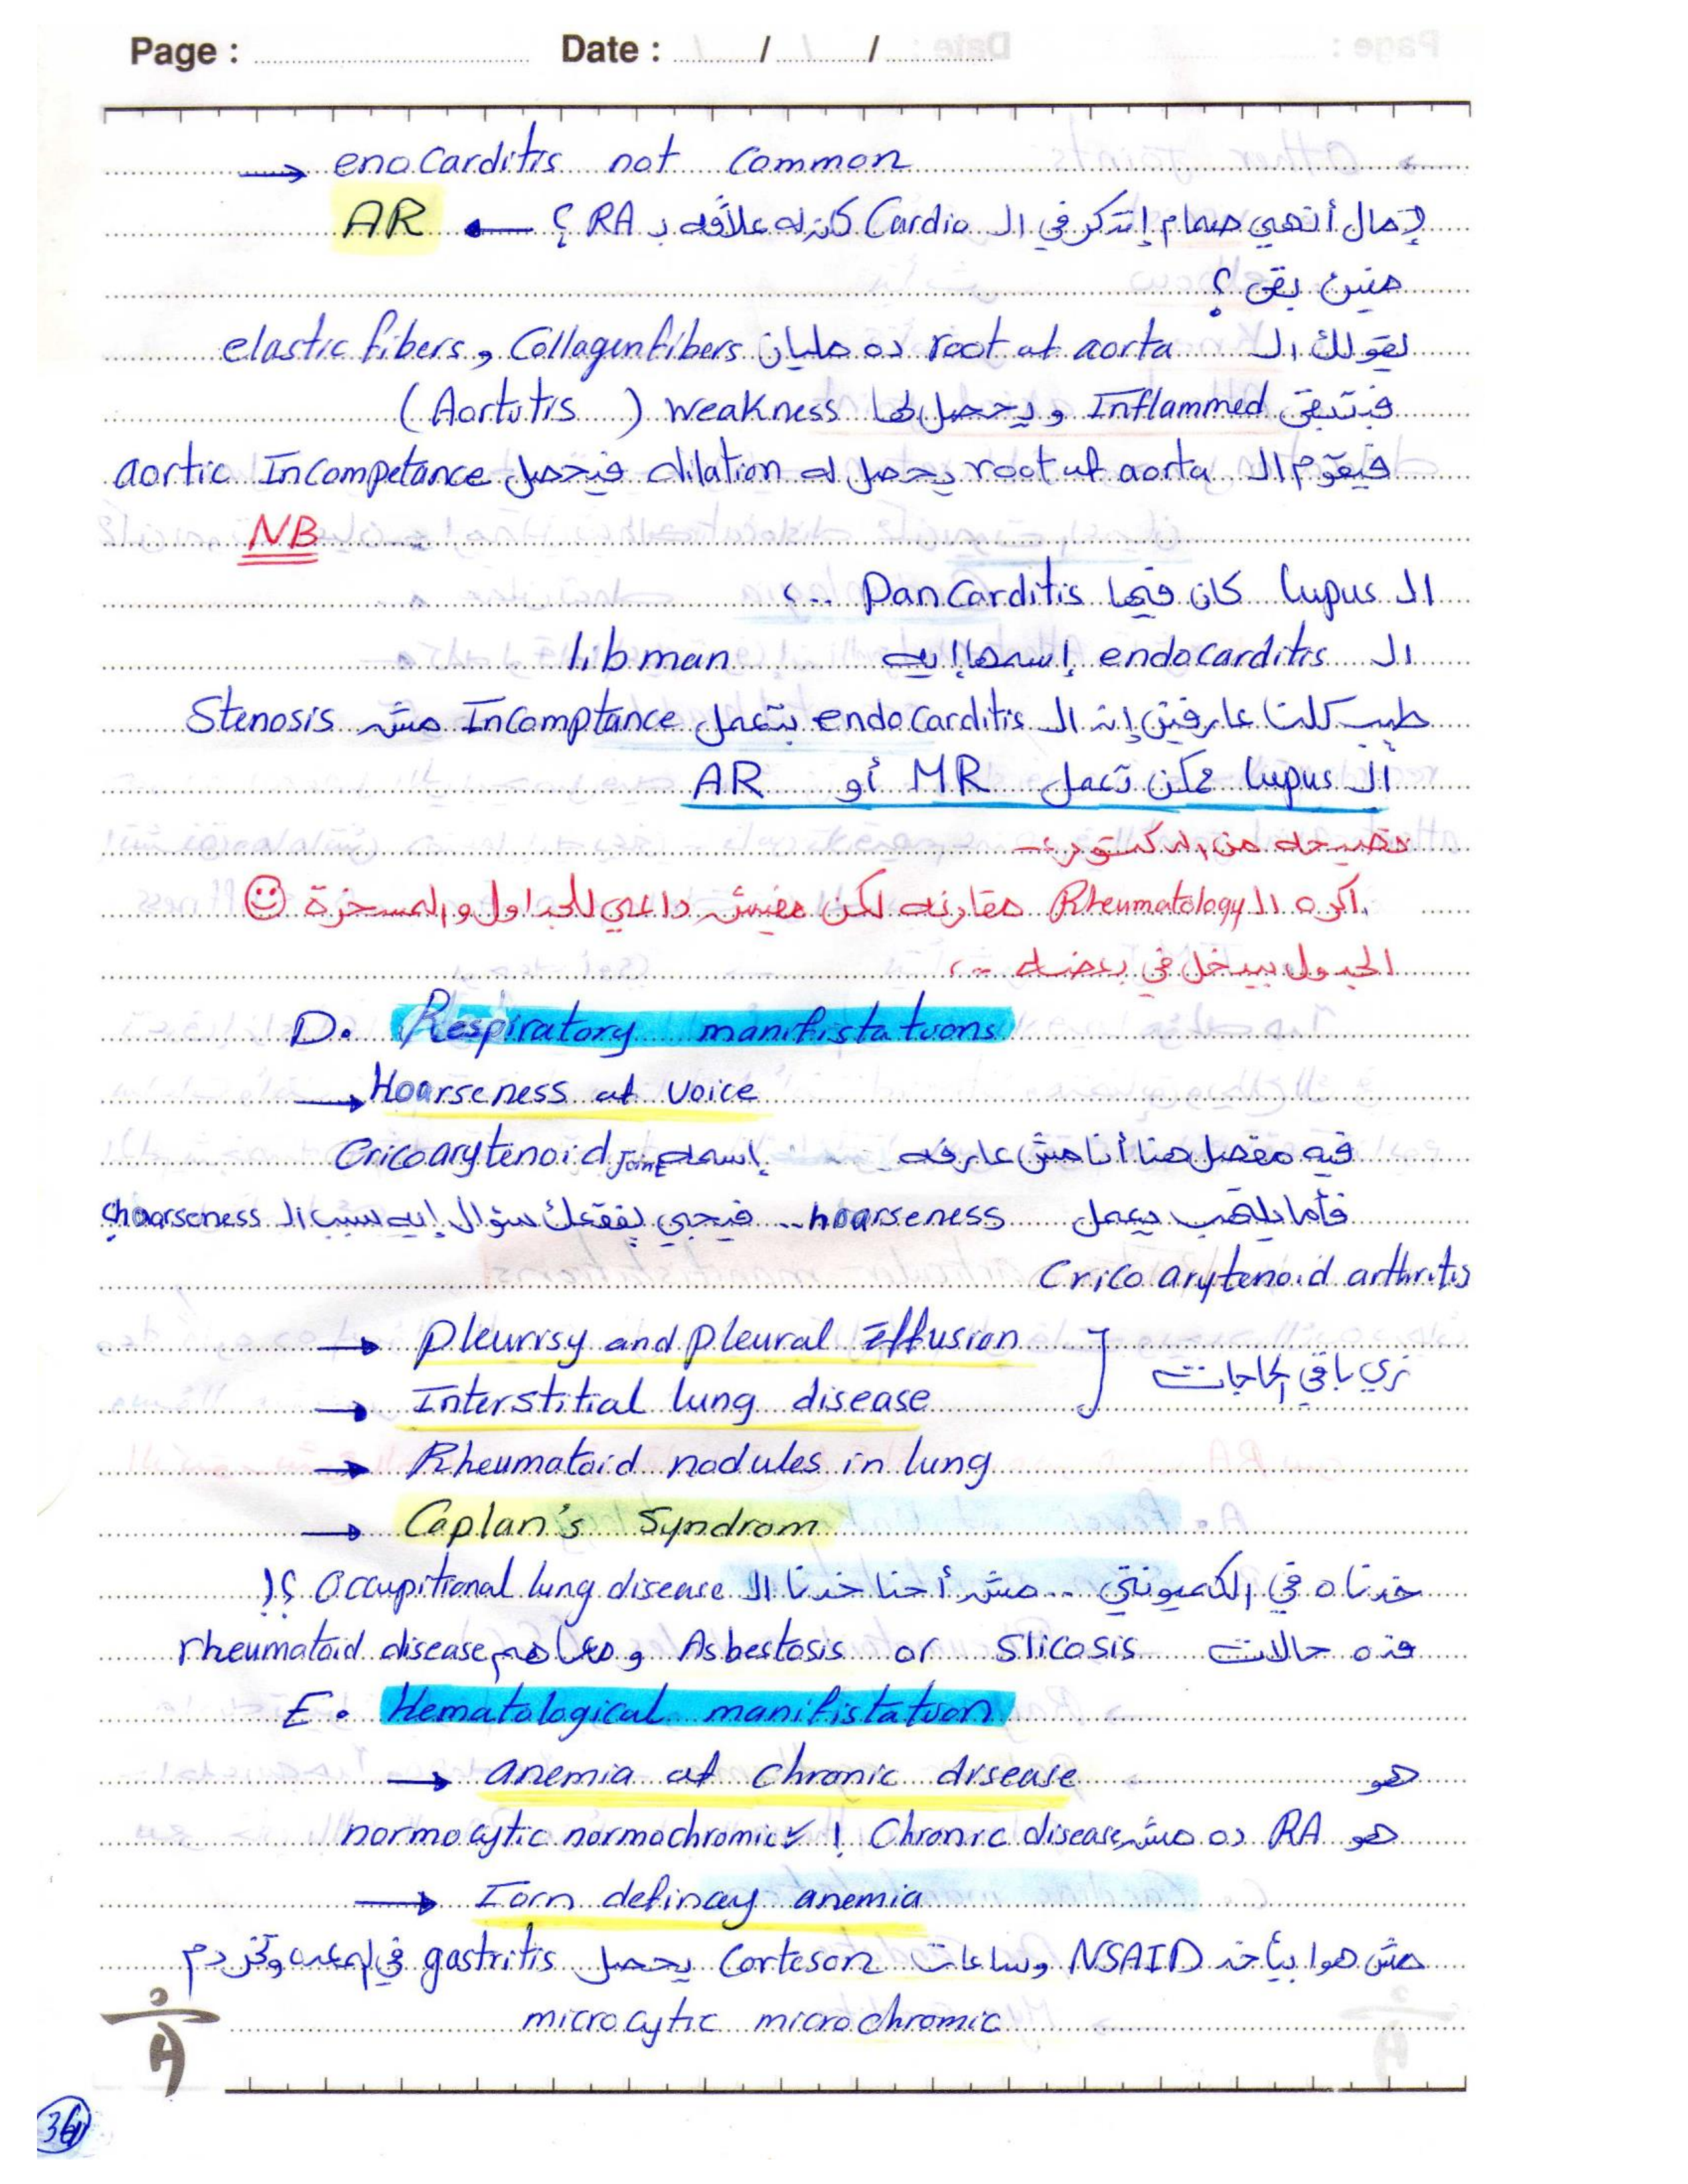 Page : Date : / /
→ enocarditis not common
إمال أنهي صمام إتذكر في الـ Cardio كان له علاقه بـ RA ؟ ← AR
منين بقى ؟
يقولك الـ root of aorta ده مليان elastic fibers و Collagen fibers
فبتبقى Inflammed و يحصل لها weakness ( Aortitis )
فيقوم الـ root of aorta يحصل له dilation فيحصل aortic Incompetance
NB
الـ lupus كان فيها Pancarditis ..؟
الـ endocarditis إسمها إيه libman
طيب كلنا عارفين إنه الـ endocarditis بتعمل Incomptance مش Stenosis
الـ lupus ممكن تعمل MR أو AR
نصيحه من الدكتور :-
أكره الـ Rheumatology مقارنه لكن مفيش داعي للجداول والمسخرة ☺
الجدول بيدخل في بعضه ..،
D. Respiratory manifistations
→ Hoarseness of voice
فيه مفصل هنا أنا مش عارفه .. إسمه Cricoarytenoid joint
فأما يلتهب يعمل hoarseness .. فيجي يفقعك سؤال إيه سبب الـ hoarseness؟
Crico arytenoid arthritis
→ pleurisy and pleural Effusion
زي باقي الحاجات
→ Interstitial lung disease
→ Rheumatoid nodules in lung
→ Caplan's Syndrom
خدناه في الكميونتي .. مش أحنا خدنا الـ Occupitional lung disease ؟!
فده حالات Slicosis or Asbestosis و معاهم rheumatoid disease
E. Hematological manifistation
→ anemia of chronic disease هو
هو RA ده مش Chronic disease ! normocytic normochromic
→ Iorn defincay anemia
مش هوا بيأخد NSAID وساعات Corteson يحصل gastritis في المعده وتخر دم
microcytic microchromic
36